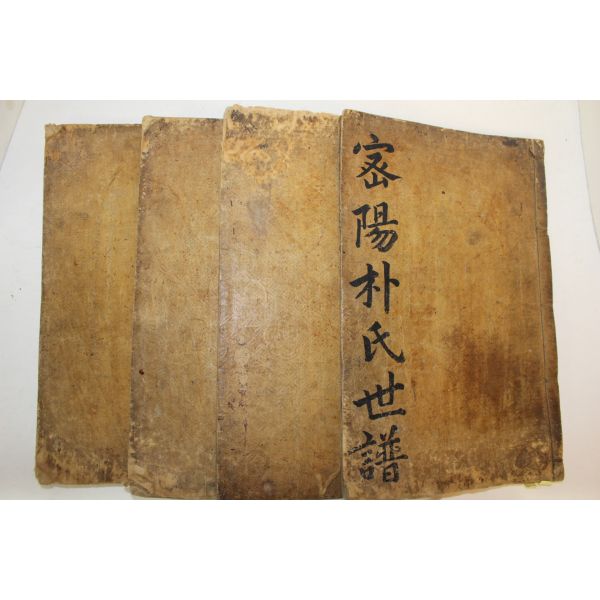 密陽朴氏世譜